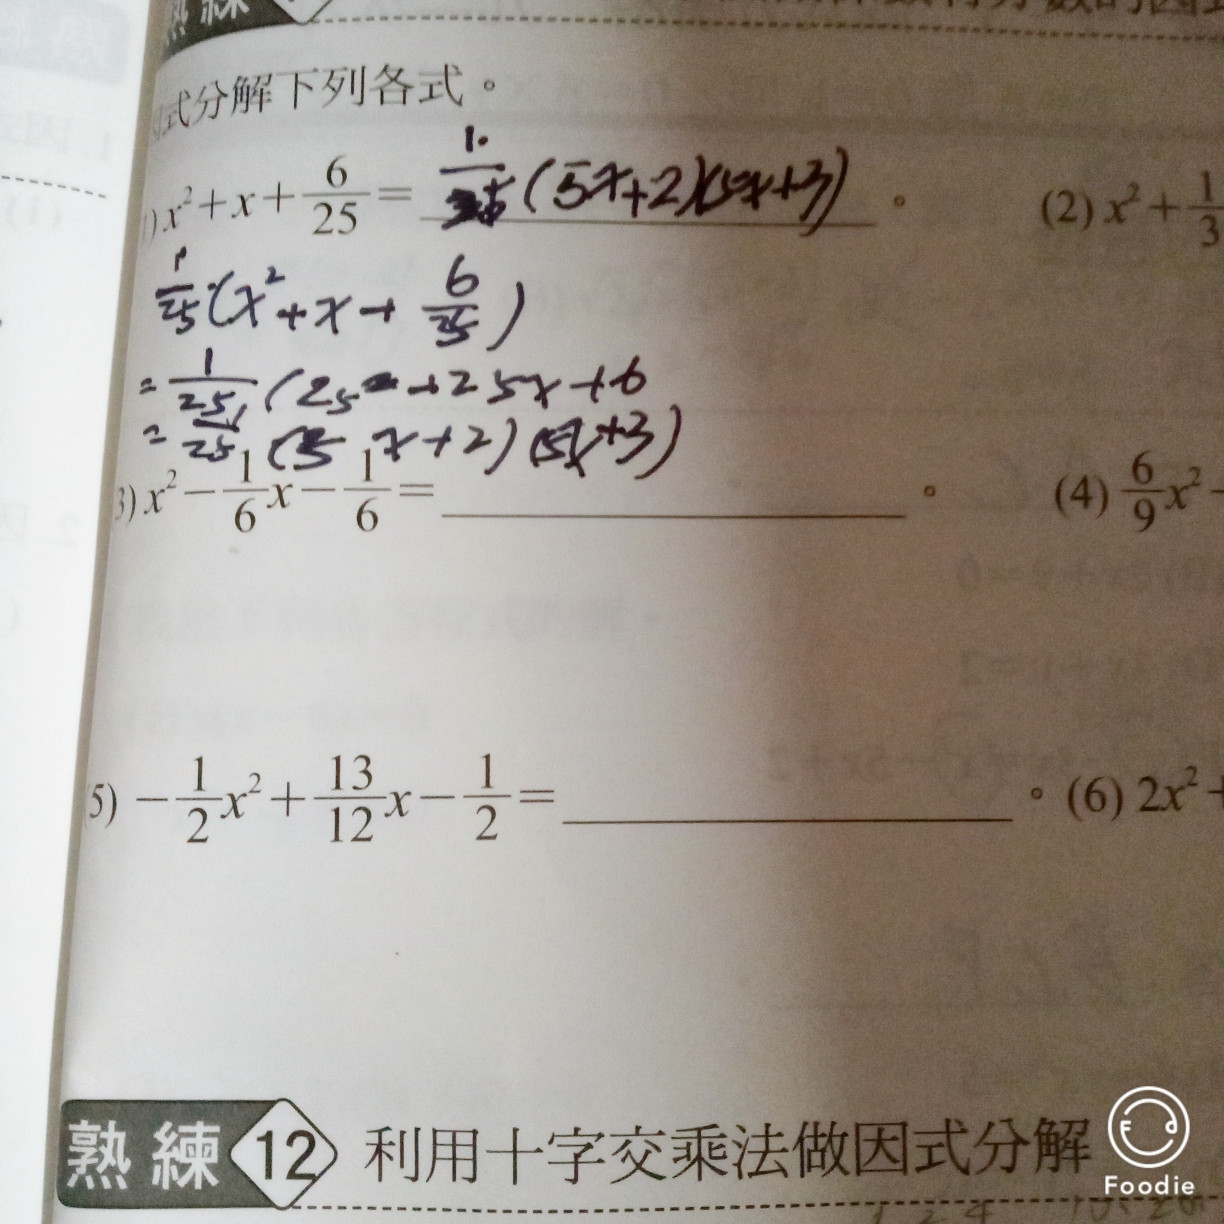 熟練
式分解下列各式。
1) x² + x + 6/25 = 1/25 (5x+2)(5x+3) 。
(2) x² + 1/3
1/25 (x² + x + 6/25)
= 1/25 (25 + 25x + 6
= 1/25 (5x+2)(5x+3)
3) x² − 1/6 x − 1/6 = 。
(4) 6/9 x² −
5) − 1/2 x² + 13/12 x − 1/2 = 。
(6) 2x² +
熟練 12 利用十字交乘法做因式分解
Foodie